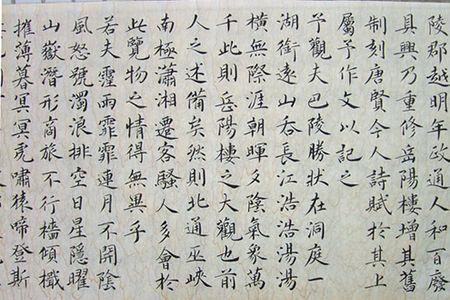 陵郡越明年政通人和百廢
具興乃重修岳陽樓增其舊
制刻唐賢今人詩賦於其上
屬予作文以記之
予觀夫巴陵勝狀在洞庭一
湖銜遠山吞長江浩浩湯湯
橫無際涯朝暉夕陰氣象萬
千此則岳陽樓之大觀也前
人之述備矣然則北通巫峽
南極瀟湘遷客騷人多會於
此覽物之情得無異乎
若夫霪雨霏霏連月不開陰
風怒號濁浪排空日星隱曜
山嶽潛形商旅不行檣傾檝
摧薄暮冥冥虎嘯猿啼登斯